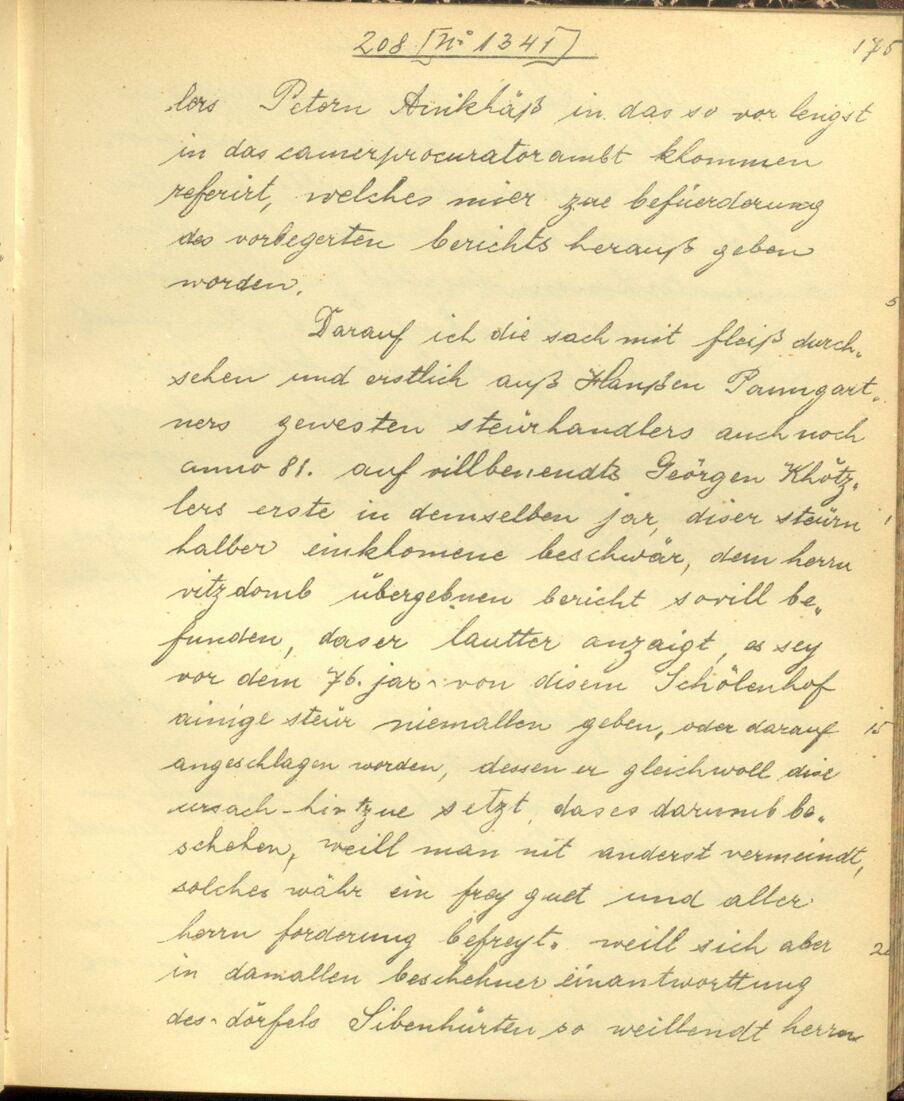 208 [No 1341]
175
lers Petern Anikhäß in das so vor lengst
in das camerprocuratorambt khommen
referirt, welches mier zue befüerderung
des vorbegerten berichts herauß geben
worden.
5
Darauf ich die sach mit fleiß durch„
sehen und erstlich auß Hanßen Paumgart„
ners gewesten steürhandlers auch noch
anno 81. auf villbenendts Geörgen Khötz„
lers erste in demselben jar, diser steürn
1
halber einkhomene beschwär, dem herrn
vitzdomb übergebnen bericht sovill be„
funden, das er lautter anzaigt, es sey
vor dem 76. jar von disem Schölenhof
ainige steür niemallen geben, oder darauf
15
angeschlagen worden, dessen er gleichwoll dise
ursach hintzue setzt, das es darumb be„
schehen, weill man nit anderst vermeindt,
solches währ ein frey guet und aller
herrn forderung befreyt. weill sich aber
20
in damallen beschehner einantworttung
des dörfels Sibenhürten so weillendt herrn